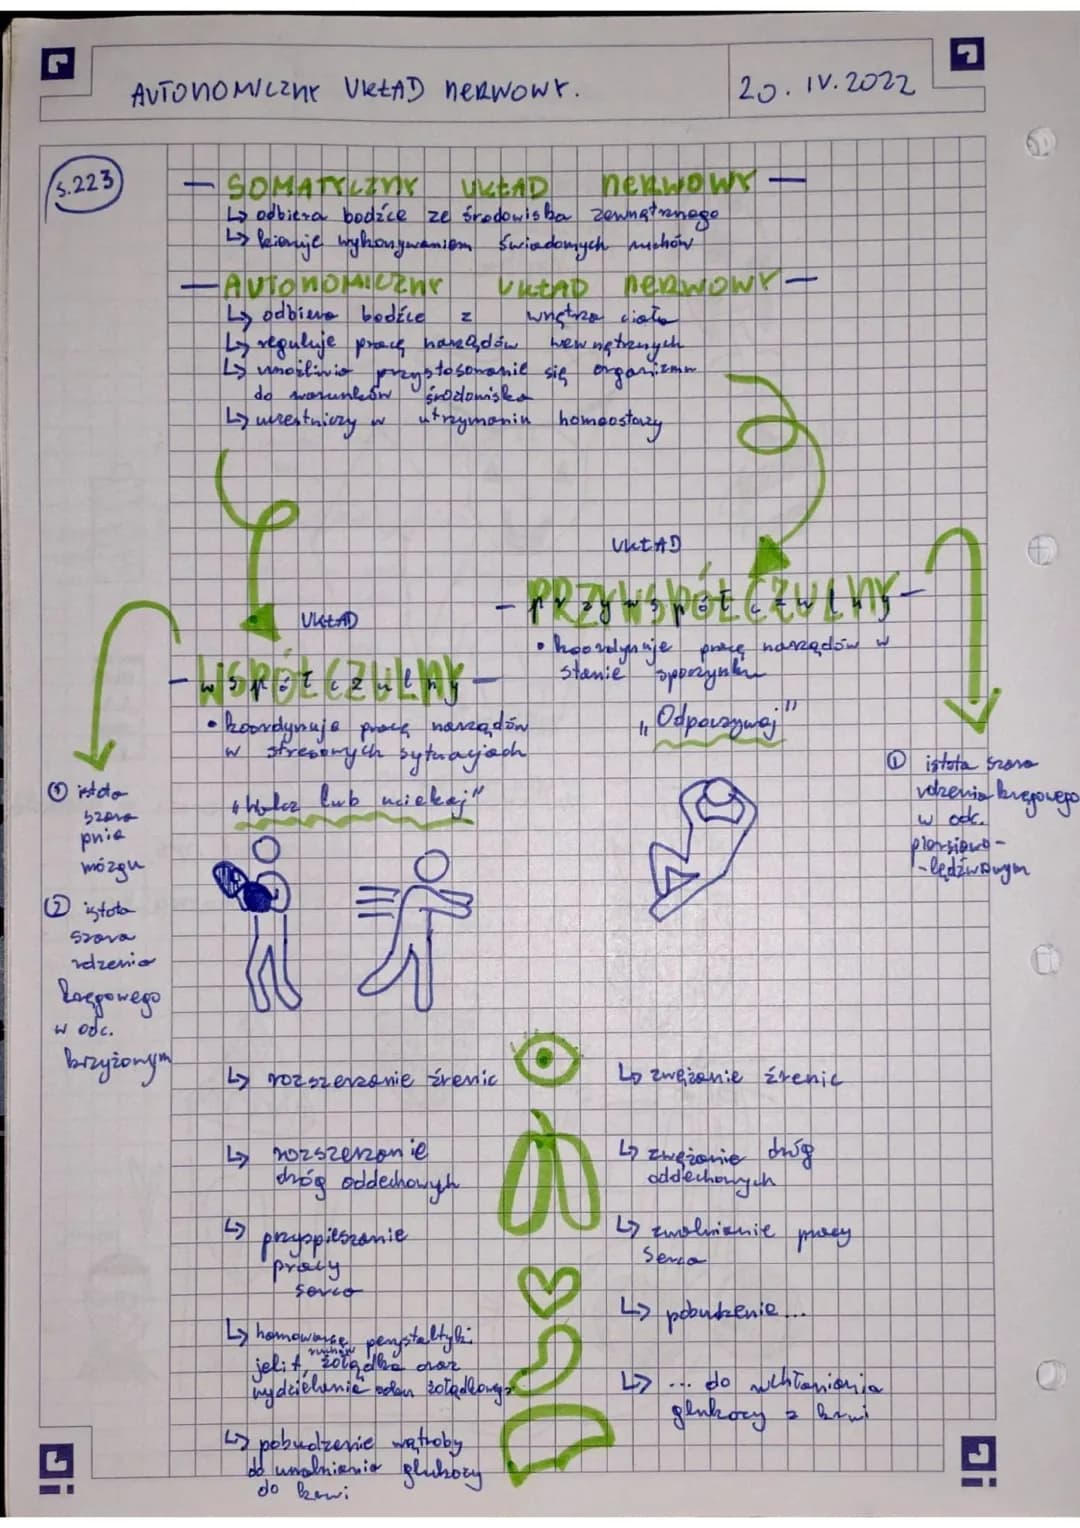 AUTONOMICZNY UKŁAD NERWOWY.
20. IV. 2022
s. 223
— SOMATYCZNY UKŁAD NERWOWY —
↳ odbiera bodźce ze środowiska zewnętrznego
↳ kieruje wykonywaniem świadomych ruchów
— AUTONOMICZNY UKŁAD NERWOWY —
↳ odbiera bodźce z wnętrza ciała
↳ reguluje pracę narządów wewnętrznych
↳ umożliwia przystosowanie się organizmu
do warunków środowiska
↳ uczestniczy w utrzymaniu homeostazy
UKŁAD
- PRZYWSPÓŁCZULNY -
• koordynuje pracę narządów w
stanie spoczynku
„Odpoczywaj"
① istota szara
rdzenia kręgowego
w odc.
piersiowo-
-lędźwowym
UKŁAD
- WSPÓŁCZULNY -
• koordynuje pracę narządów
w stresowych sytuacjach
„Walcz lub uciekaj"
① istota
szara
pnia
mózgu
② istota
szara
rdzenia
kręgowego
w odc.
krzyżowym
↳ rozszerzanie źrenic
↳ zwężanie źrenic
↳ rozszerzanie
dróg oddechowych
↳ zwężanie dróg
oddechowych
↳ przyspieszanie
pracy
serca
↳ zwalnianie pracy
serca
↳ hamowanie perystaltyki
ruchów
jelit, żołądka oraz
wydzielanie soku żołądkowego
↳ pobudzenie...
↳ pobudzenie wątroby
do uwalniania glukozy
do krwi
↳ ... do wchłaniania
glukozy z krwi